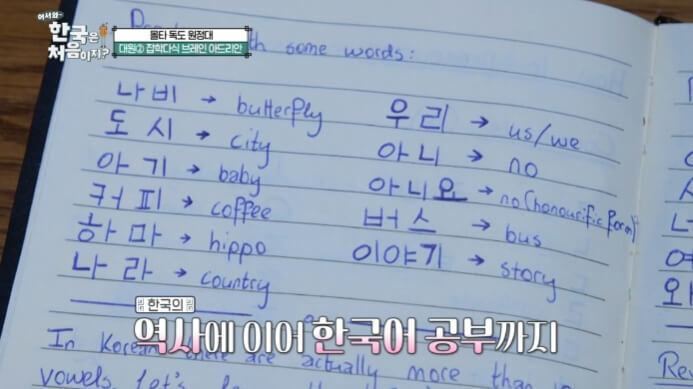 어서와~
한국은
처음이지?
몰타 독도 원정대
대원② 잡학다식 브레인 아드리안
some words:
나비 → butterfly
도시 → city
아기 → baby
커피 → coffee
하마 → hippo
나라 → country
우리 → us/we
아니 → no
아니요 → no (honourific form)
버스 → bus
이야기 → story
한국의
역사에 이어 한국어 공부까지
In Korean there are actually more than
vowels, let's